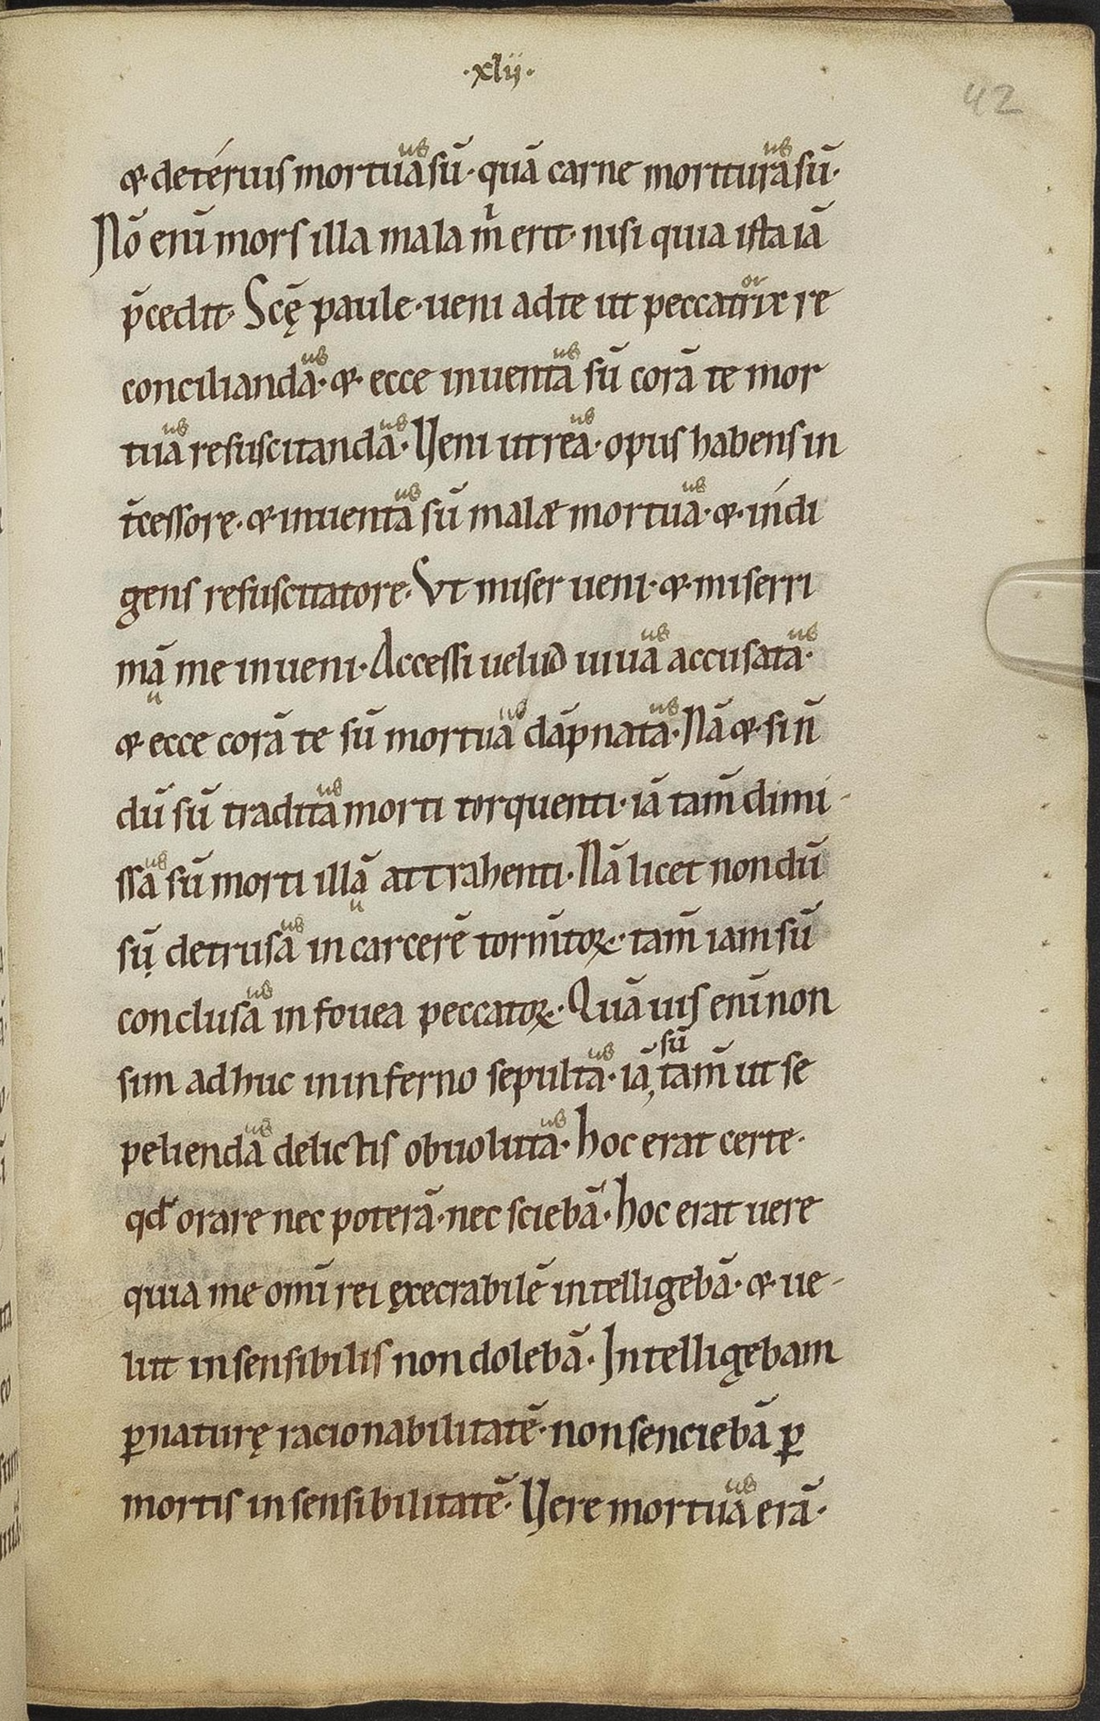 ·xlii·
42
& deteriusmortuaᵘˢsū· quā carne moritturaᵘˢsū·
Nō enī mors illa mala m̄ erit· nisi quia ista iā
p̄cedit· Scę̄ paule·ueni adte ut peccatrixᵒʳ re
concilianda᷒ᵘˢ· & ecce inuentaᵘˢ sū corā te mor
tuaᵘˢ resuscitandaᵘˢ· Ueni ut reaᵘˢ· opus habens in
t̄cessore· & inuentaᵘˢ sū malæ mortuaᵘˢ· & indi
gens resuscitatore· Vt miser ueni· & miserri
mā me inueni· Accessi uelud uiuaᵘˢ accusataᵘˢ·
& ecce corā te sū mortuaᵘˢ dāpnataᵘˢ· Nā & si ñ
dū sū traditaᵘˢ morti torquenti· iā tam̄ dimi-
ssaᵘˢ sū morti illā attrahenti· Nā licet nondū
sū detrusaᵘˢ in carcerē torm̄toꝝ· tam̄ iam sū
conclusaᵘˢ in fouea peccatoꝝ· Quāuis enī non
sim adhuc in inferno sepultaᵘˢ· iā, sū tam̄ ut se
peliendaᵘˢ delictis obuolutaᵘˢ· hoc erat certe·
qd' orare nec poterā· nec sciebā· hoc erat uere
quia me omī rei execrabilē intelligebā· & ue-
lut insensibilis non dolebā· Intelligebam
ꝑ naturę racionabilitatē· non senciebā ꝑ
mortis insensibilitatē· Uere mortuaᵘˢ erā·